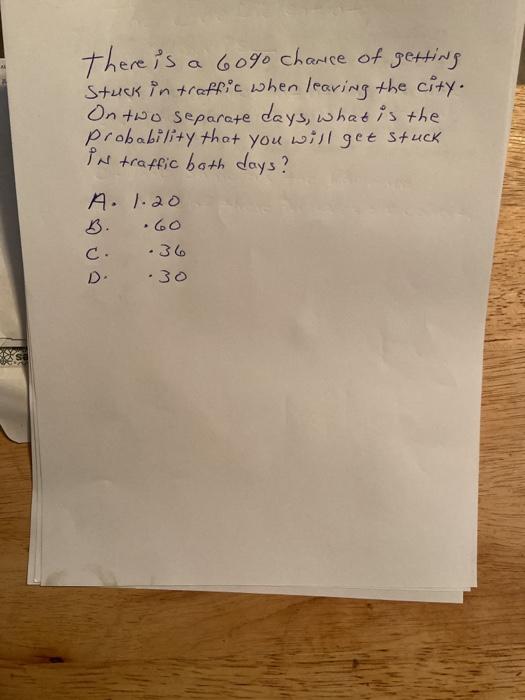 there is a 60% chance of getting
stuck in traffic when leaving the city.
On two separate days, what is the
probability that you will get stuck
in traffic both days?
A. 1.20
B. .60
C. .36
D. .30